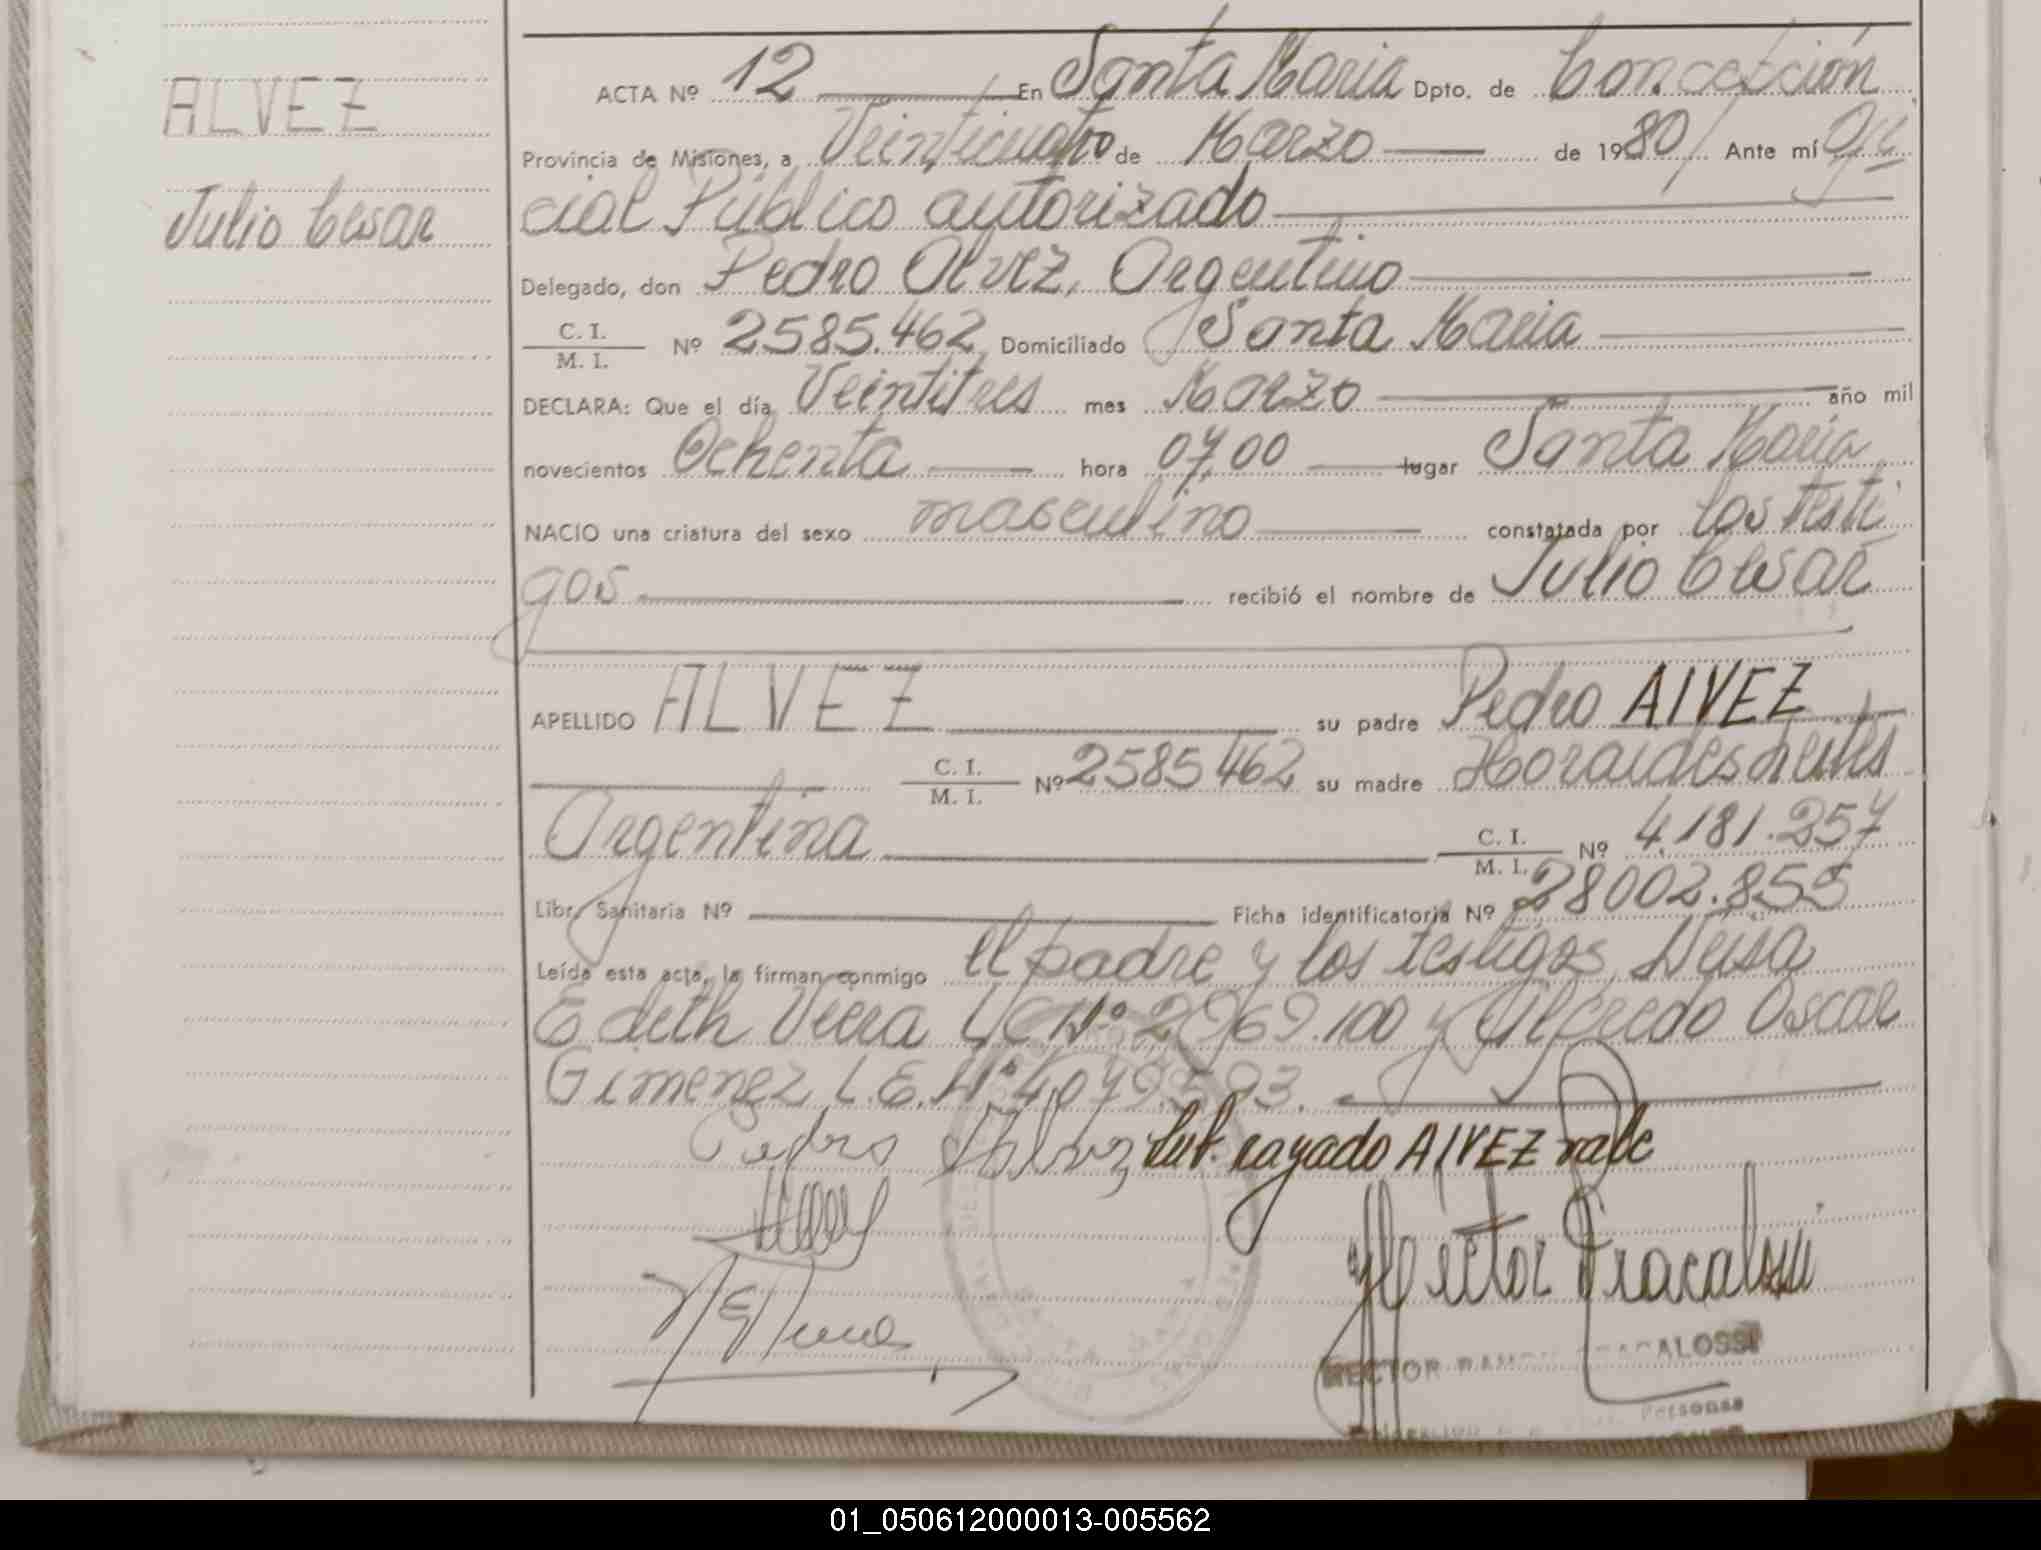 ALVEZ
Julio Cesar
ACTA Nº 12 En Santa Maria Dpto. de Concepción
Provincia de Misiones, a Veinticuatro de Marzo de 1980 Ante mí Ofi
cial Público autorizado
Delegado, don Pedro Alvez, Argentino
C. I. / M. I. Nº 2585.462 Domiciliado Santa Maria
DECLARA: Que el día Veintitres mes Marzo año mil
novecientos Ochenta hora 07,00 lugar Santa Maria
NACIO una criatura del sexo masculino constatada por los testi
gos recibió el nombre de Julio Cesar
APELLIDO ALVEZ su padre Pedro AlVEZ
C. I. / M. I. Nº 2585462 su madre
Argentina C. I. / M. I. Nº 4.181.257
Libr. Sanitaria Nº Ficha identificatoria Nº 28002.855
Leída esta acta, la firman conmigo el padre y los testigos, Neusa
Edith Vieira L.C Nº 2969.100 y Alfredo Oscar
Gimenez L.E. Nº 4079.593.
Pedro Alvez Sub. rayado AlVEZ vale
Hector Dracalossi
HECTOR RAMON DRACALOSSI
Personas
01_050612000013-005562